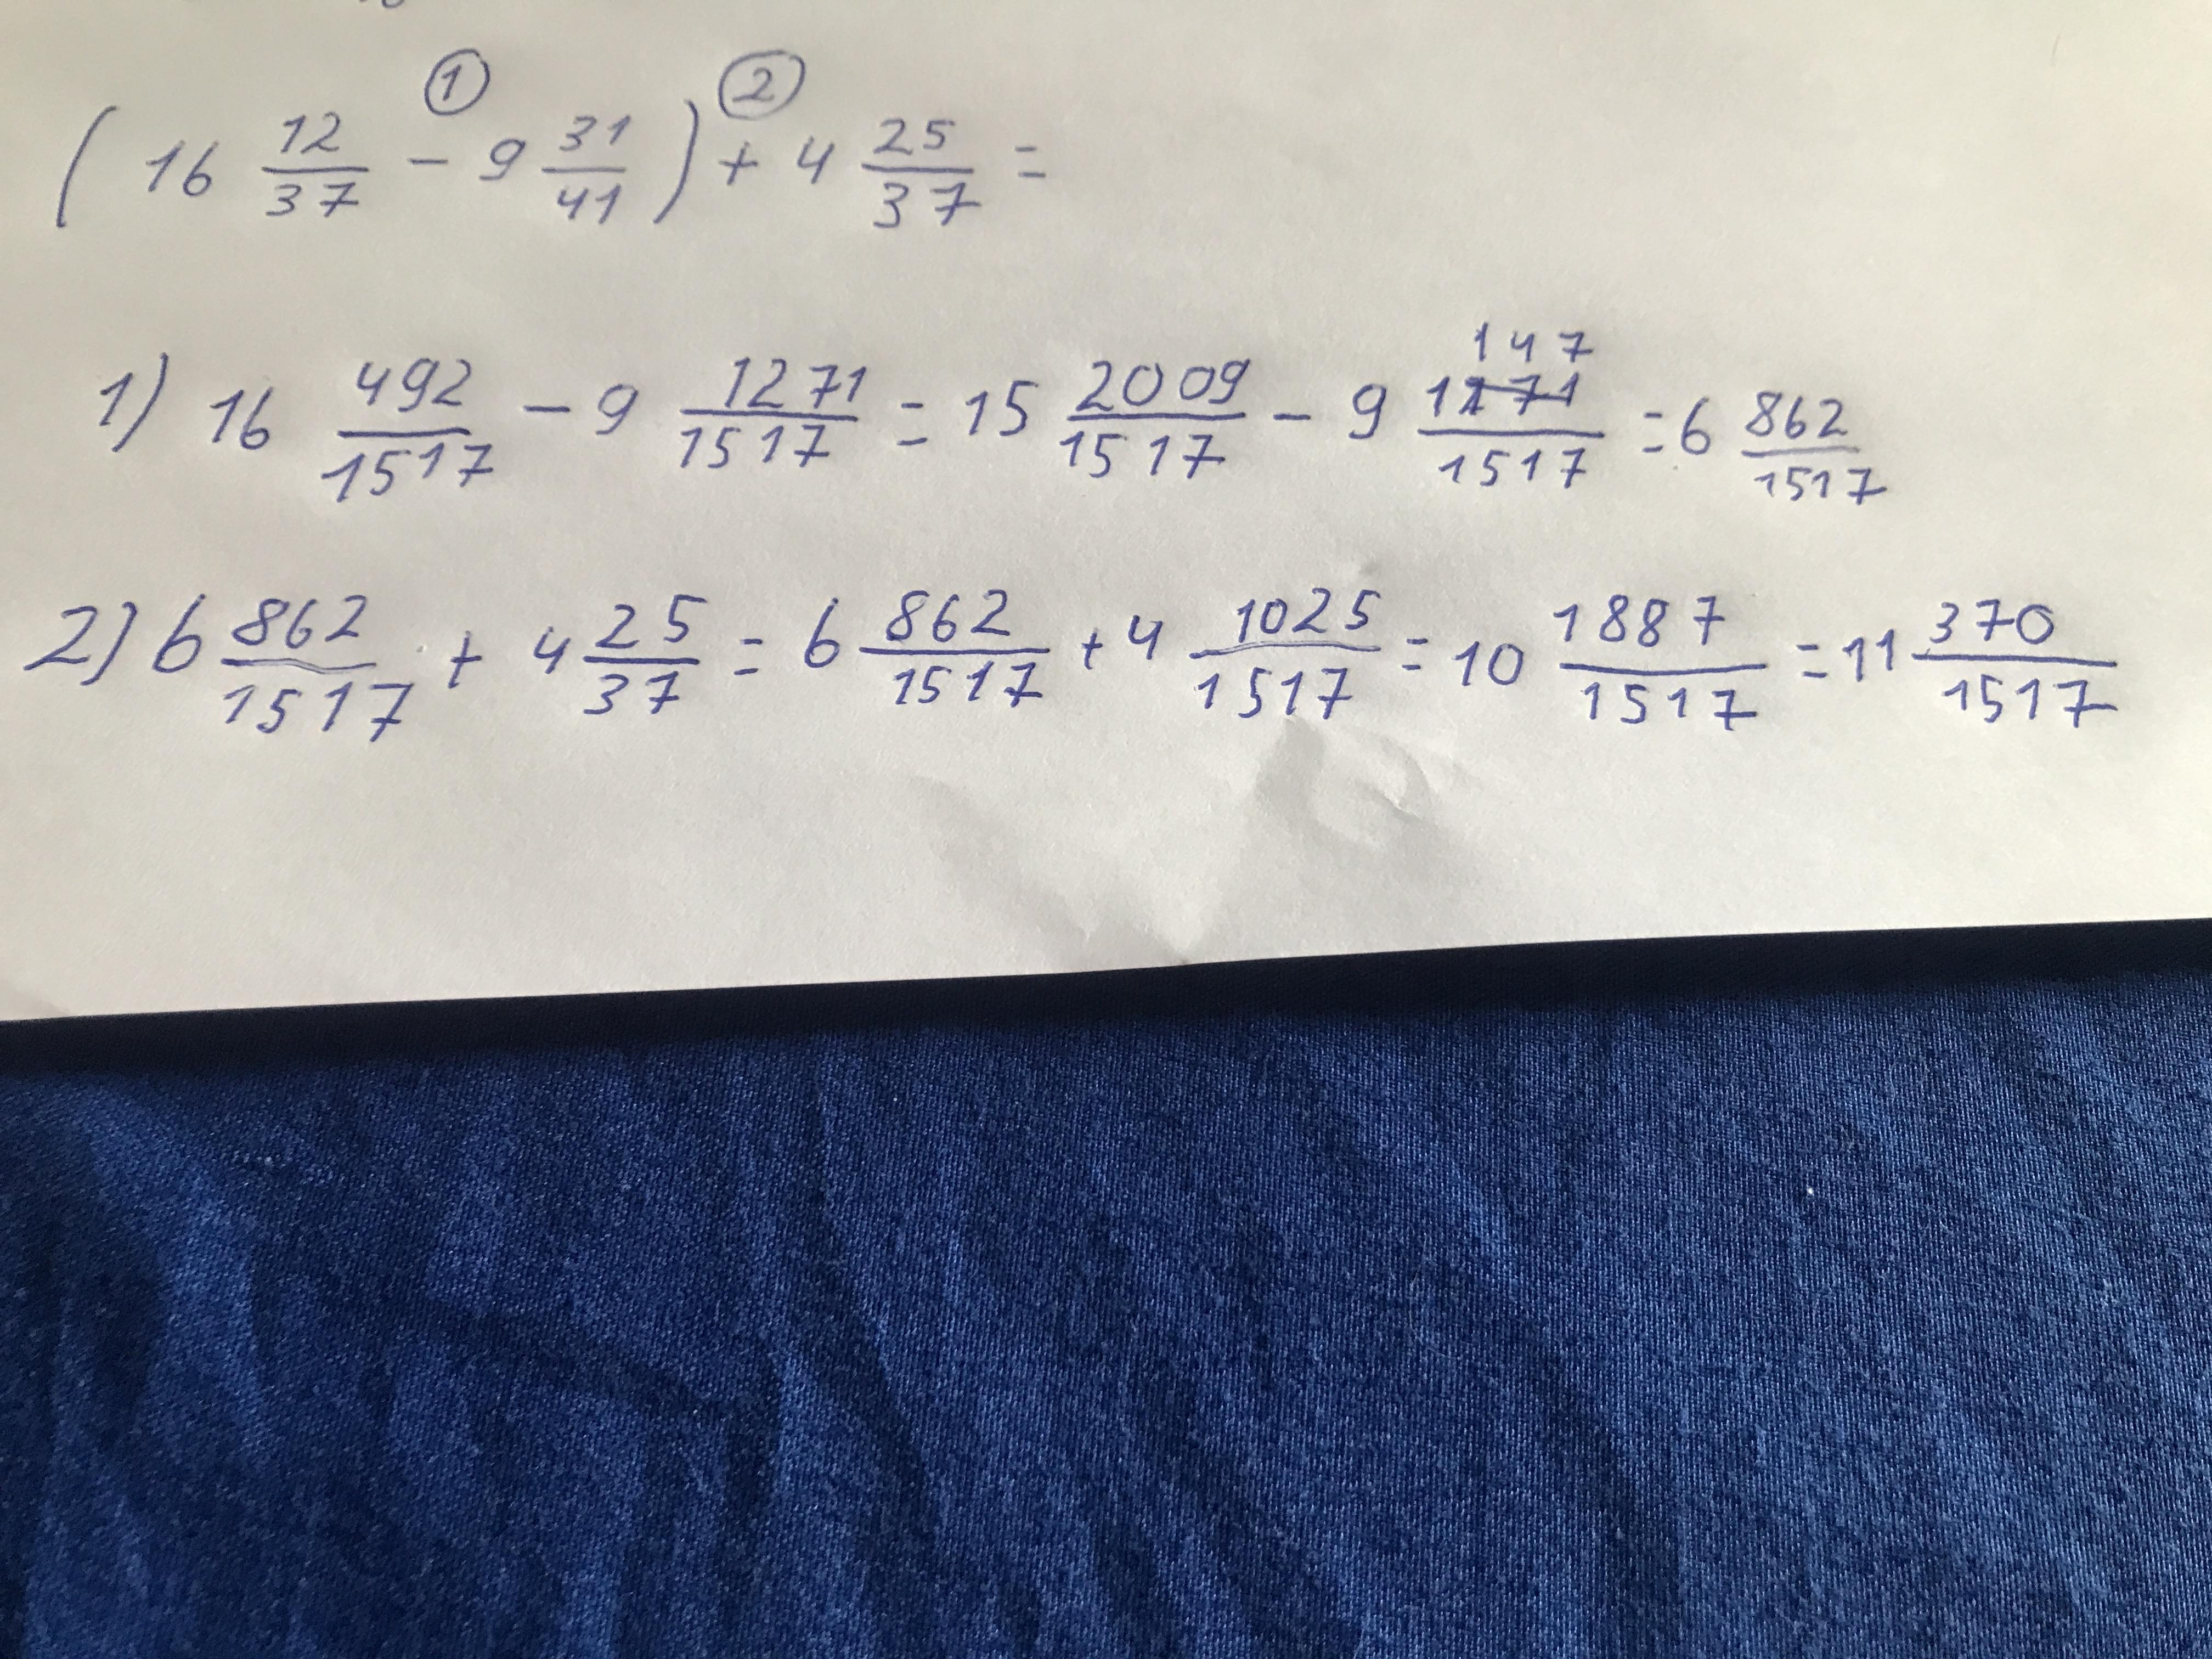 ① ②
(16 12/37 - 9 31/41) + 4 25/37 =
1) 16 492/1517 - 9 1271/1517 = 15 2009/1517 - 9 1147/1517 = 6 862/1517
2) 6 862/1517 + 4 25/37 = 6 862/1517 + 4 1025/1517 = 10 1887/1517 = 11 370/1517